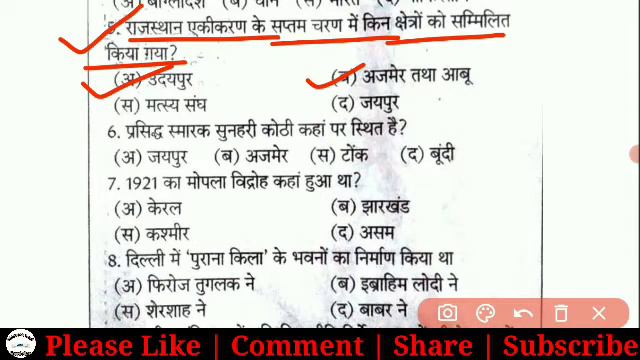 (अ) बांग्लादेश (ब) चीन (स) भारत
5. राजस्थान एकीकरण के सप्तम चरण में किन क्षेत्रों को सम्मिलित
किया गया?
(अ) उदयपुर (ब) अजमेर तथा आबू
(स) मत्स्य संघ (द) जयपुर
6. प्रसिद्ध स्मारक सुनहरी कोठी कहां पर स्थित है?
(अ) जयपुर (ब) अजमेर (स) टोंक (द) बूंदी
7. 1921 का मोपला विद्रोह कहां हुआ था?
(अ) केरल (ब) झारखंड
(स) कश्मीर (द) असम
8. दिल्ली में 'पुराना किला' के भवनों का निर्माण किया था
(अ) फिरोज तुगलक ने (ब) इब्राहिम लोदी ने
(स) शेरशाह ने (द) बाबर ने
Please Like | Comment | Share | Subscribe